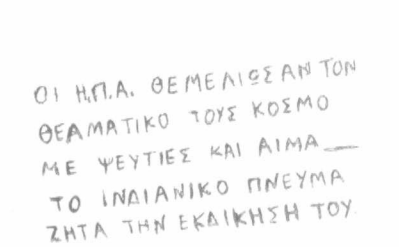 ΟΙ Η.Π.Α. ΘΕΜΕΛΙΩΣΑΝ ΤΟΝ
ΘΕΑΜΑΤΙΚΟ ΤΟΥΣ ΚΟΣΜΟ
ΜΕ ΨΕΥΤΙΕΣ ΚΑΙ ΑΙΜΑ —
ΤΟ ΙΝΔΙΑΝΙΚΟ ΠΝΕΥΜΑ
ΖΗΤΑ ΤΗΝ ΕΚΔΙΚΗΣΗ ΤΟΥ.